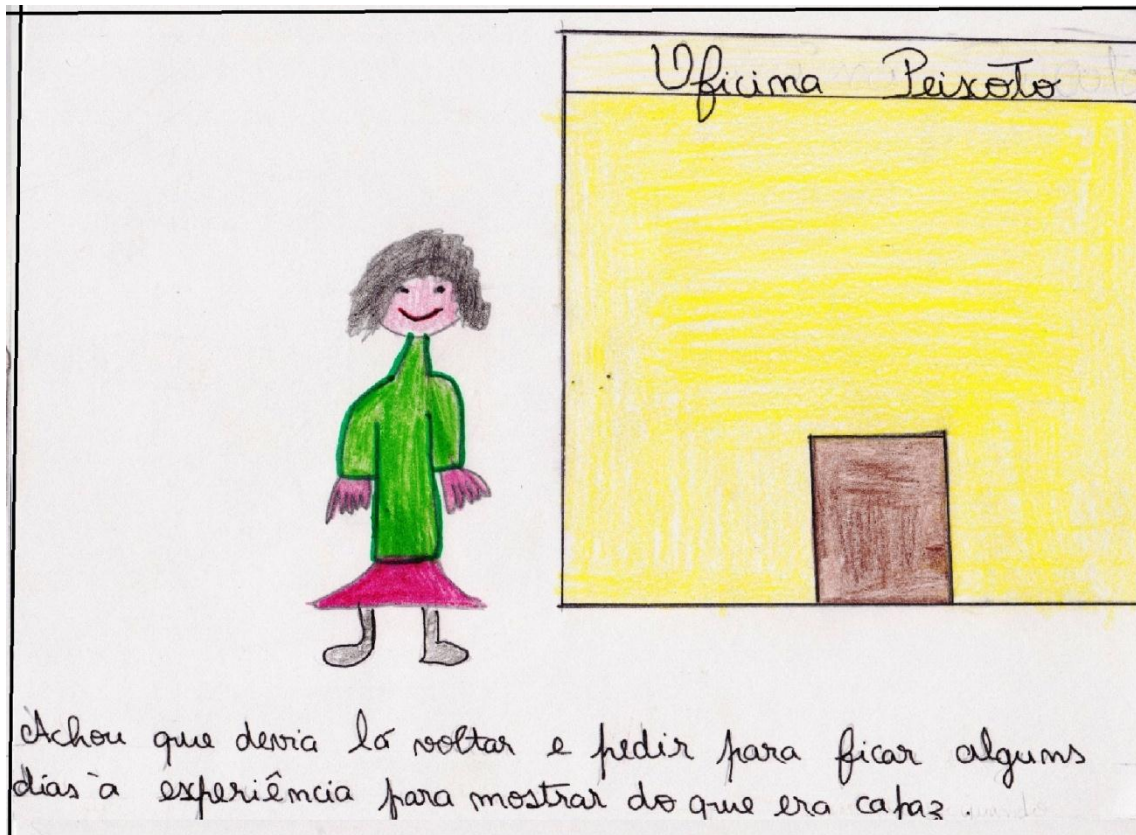 Oficina Peixoto
Achou que devia lá voltar e pedir para ficar alguns
dias à experiência para mostrar do que era capaz.